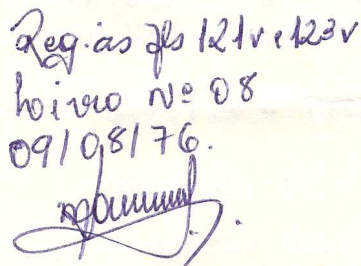 Reg. às fls 121v e 123v
Livro Nº 08
09/08/76.